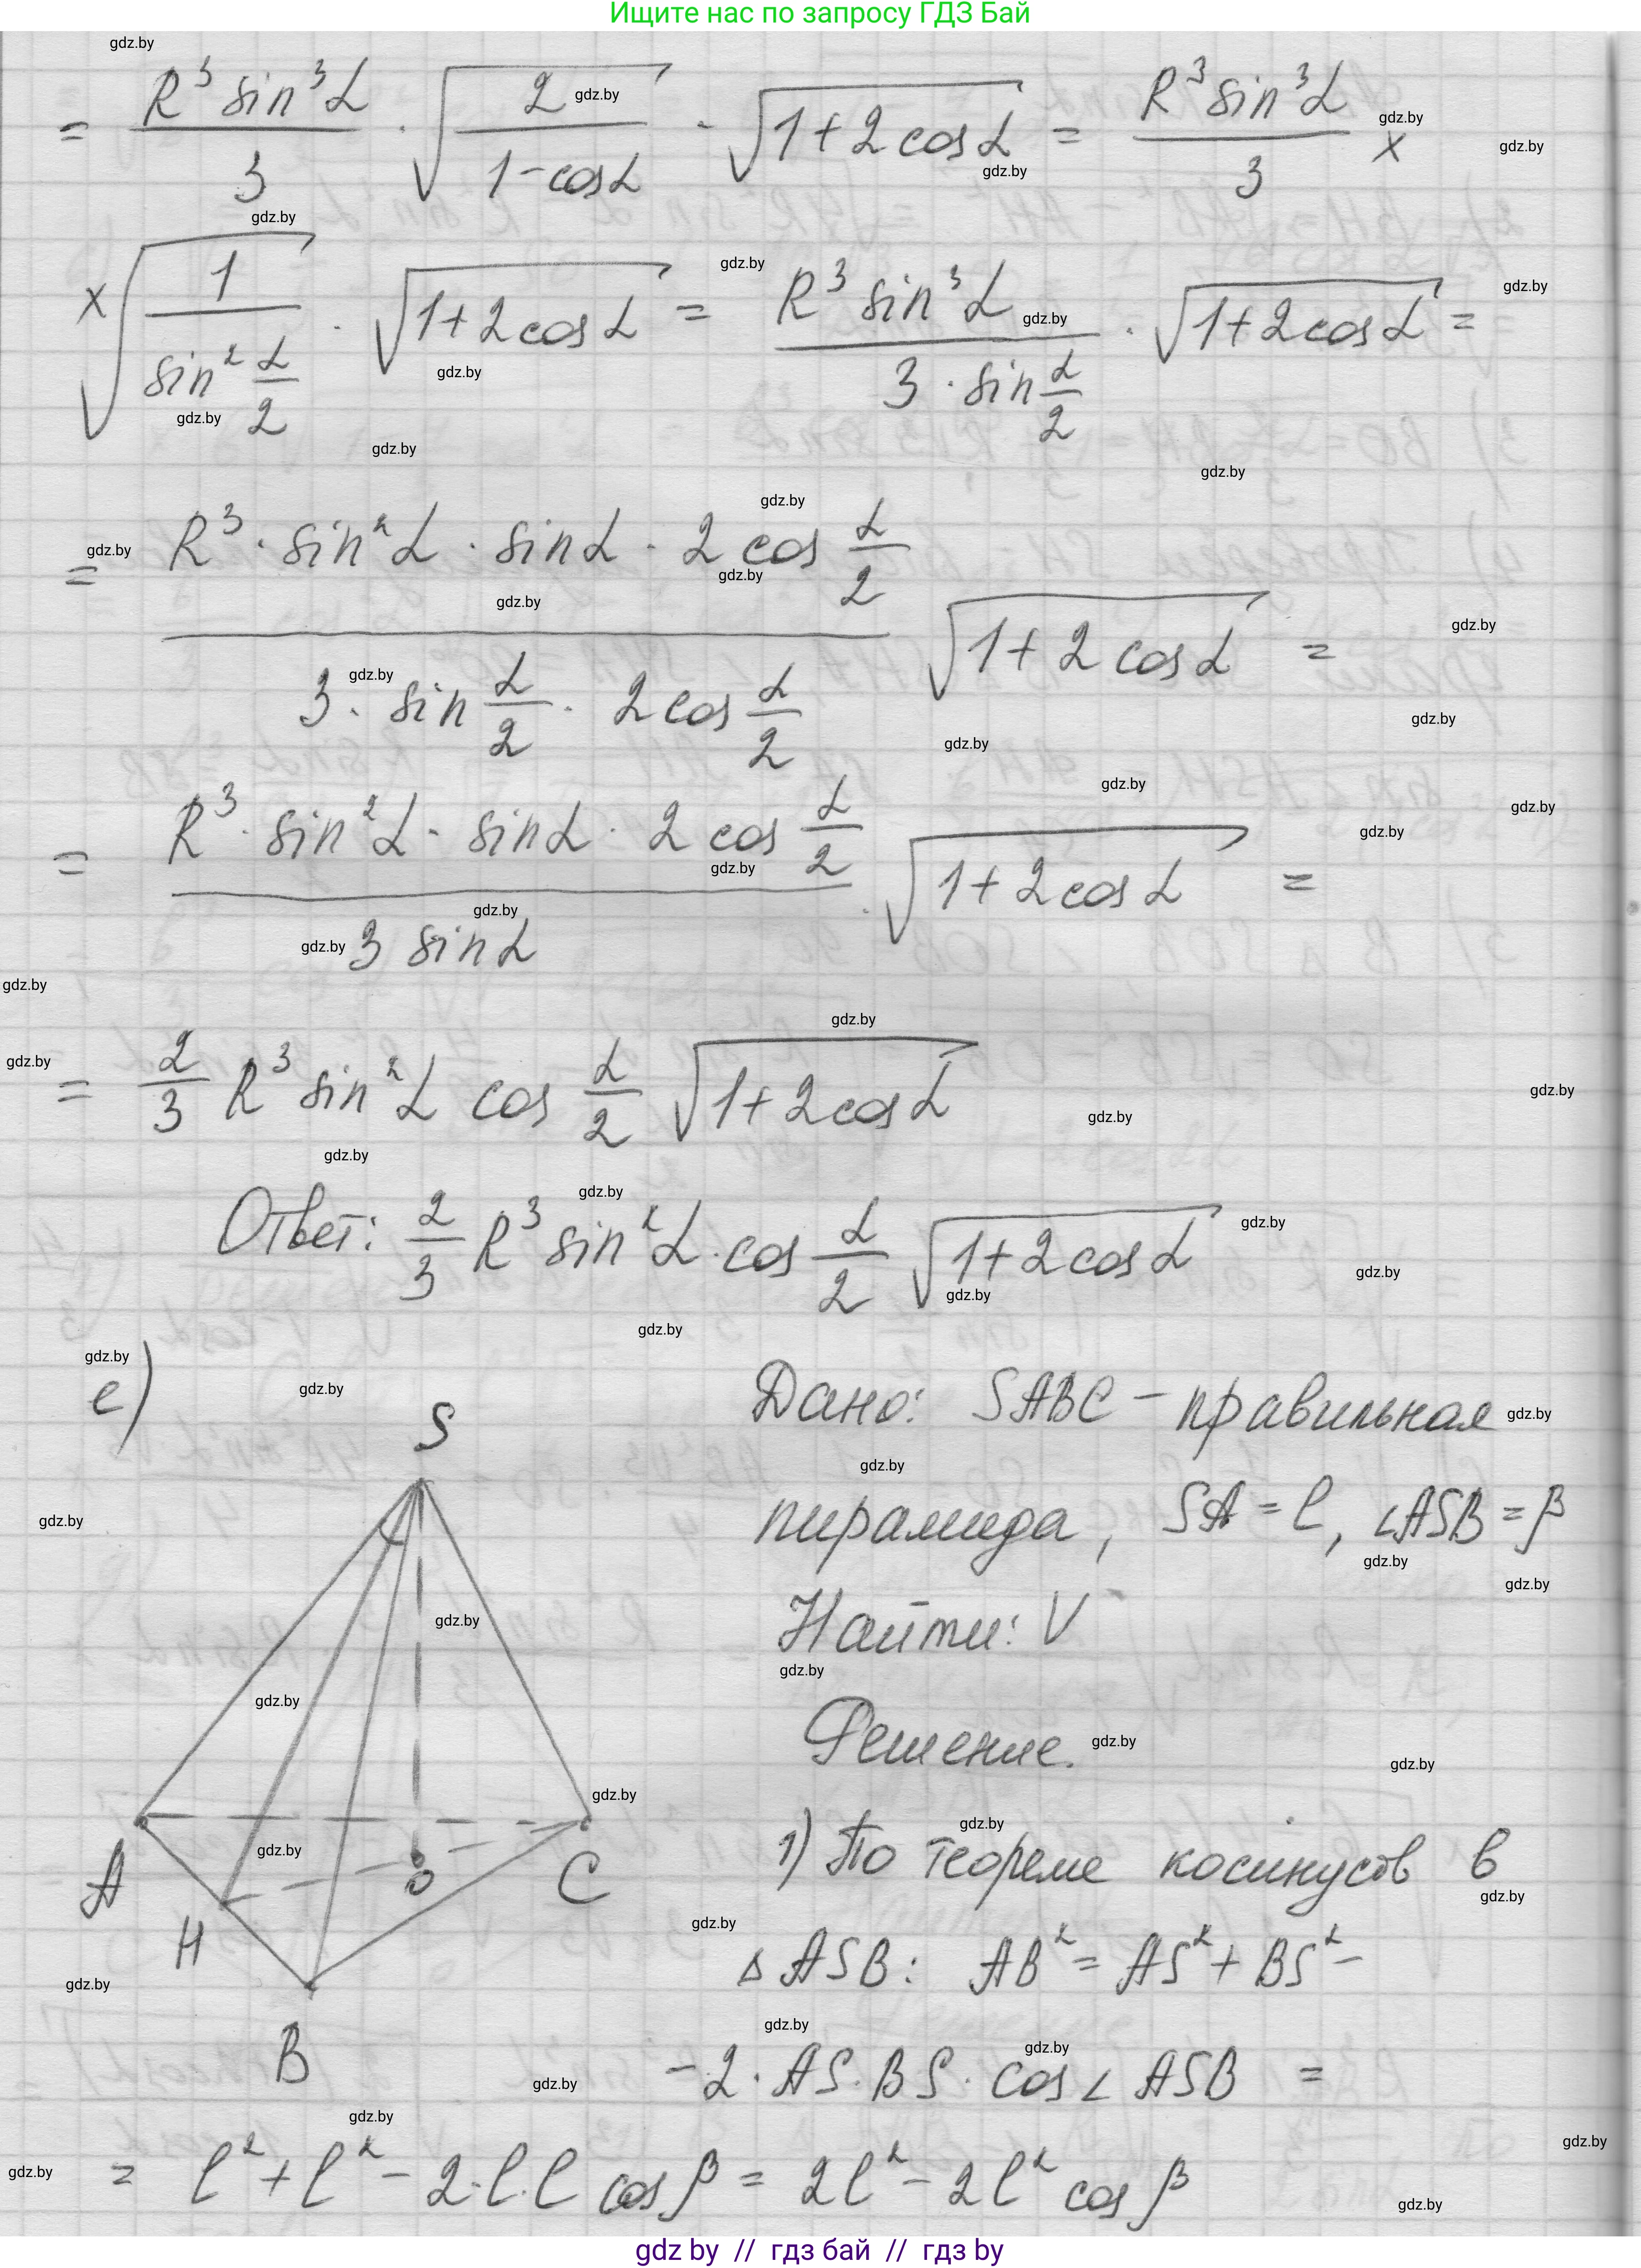 Ищите нас по запросу ГДЗ Бай
= R³ sin³α / 3 · √(2 / (1-cosα)) · √(1+2cosα) = R³ sin³α / 3 ×
× √(1 / sin² α/2) · √(1+2cosα) = R³ sin³α / (3 · sin α/2) · √(1+2cosα) =
= R³ · sin²α · sinα · 2 cos α/2 / (3 · sin α/2 · 2cos α/2) √(1+2cosα) =
= R³ · sin²α · sinα · 2 cos α/2 / (3 sinα) · √(1+2cosα) =
= 2/3 R³ sin²α cos α/2 √(1+2cosα)
Ответ: 2/3 R³ sin²α · cos α/2 √(1+2cosα)
е)
S
A
H
O
C
B
Дано: SABC – правильная
пирамида, SA = l, ∠ASB = β
Найти: V
Решение.
1) По теореме косинусов в
△ASB: AB² = AS² + BS² –
– 2 · AS · BS · cos∠ASB =
= l² + l² – 2·l·l cosβ = 2l² – 2l² cosβ
gdz by // гдз бай // гдз by